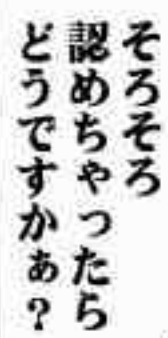 そろそろ
認めちゃったら
どうですかぁ？